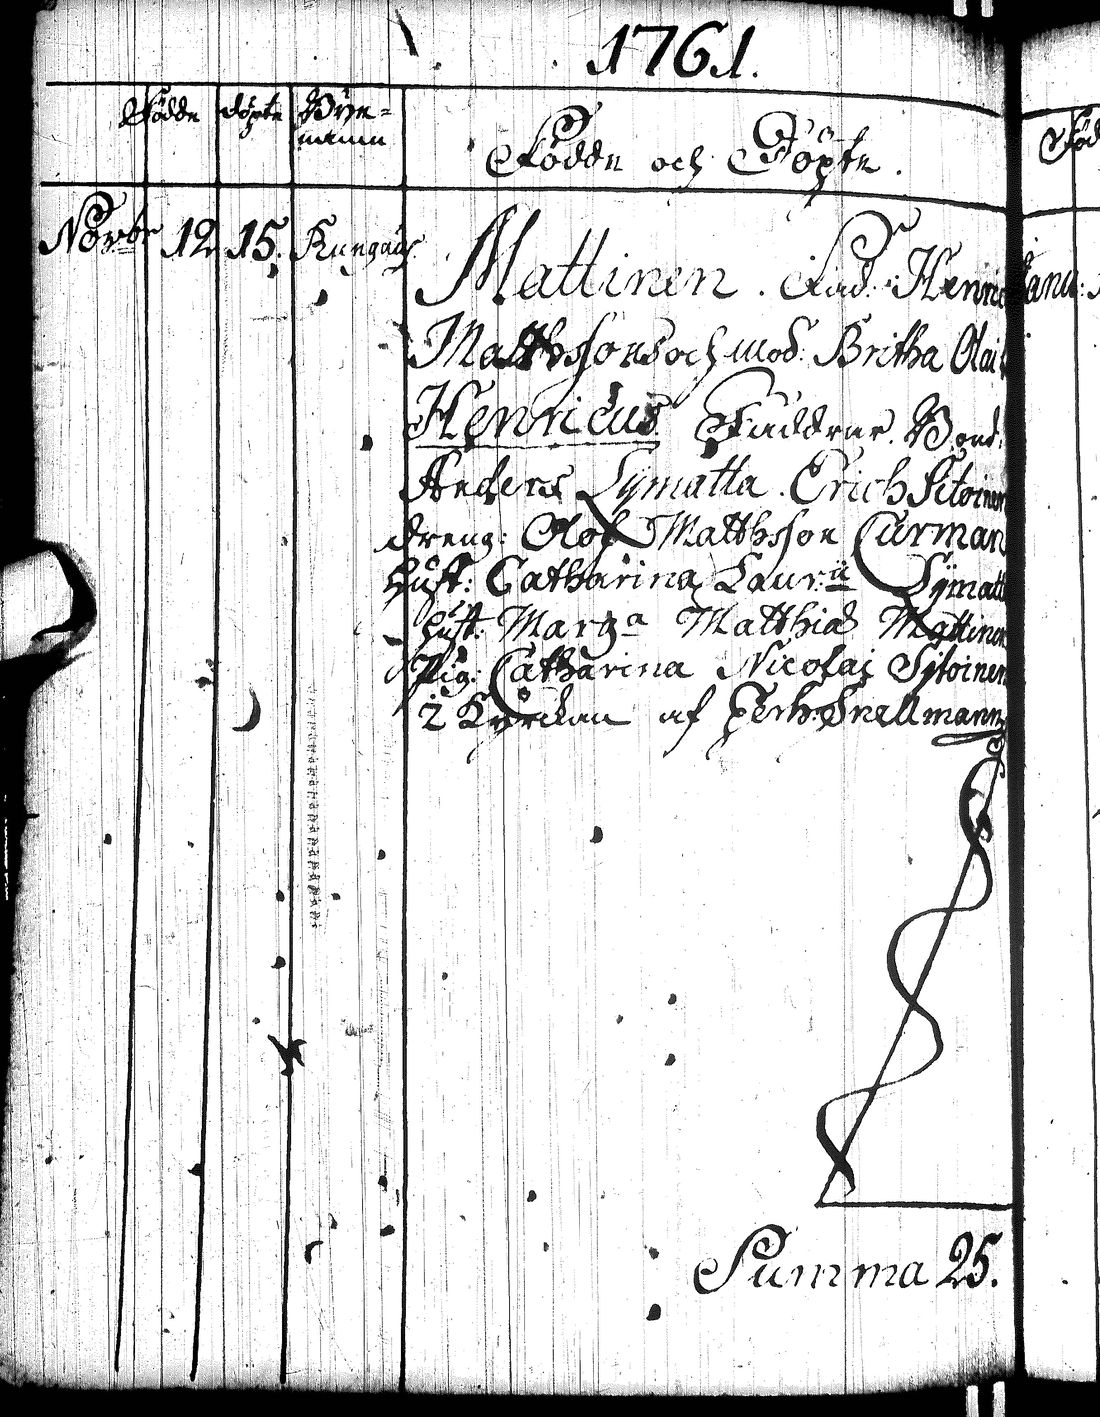 1761.
Födde
döpte
Bÿe-
namn
Födde och Döpte.
Föd
Novbr 12 15. Kungäs.
Mattinen. Fad: Henric
Matthsson och mod: Britha Olai
Henricus Faddrar. Bond:
Anders Lymatta. Erich Sitoinen
dreng: Olof Matthsson Curman
hust: Catharina Laur:ii Lÿmatt
hust: Marg:a Matthiæ Mattinen
Pig: Catharina Nicolai Sitoinen
i Kyrckan af Petr: Snellmann
Summa 25.